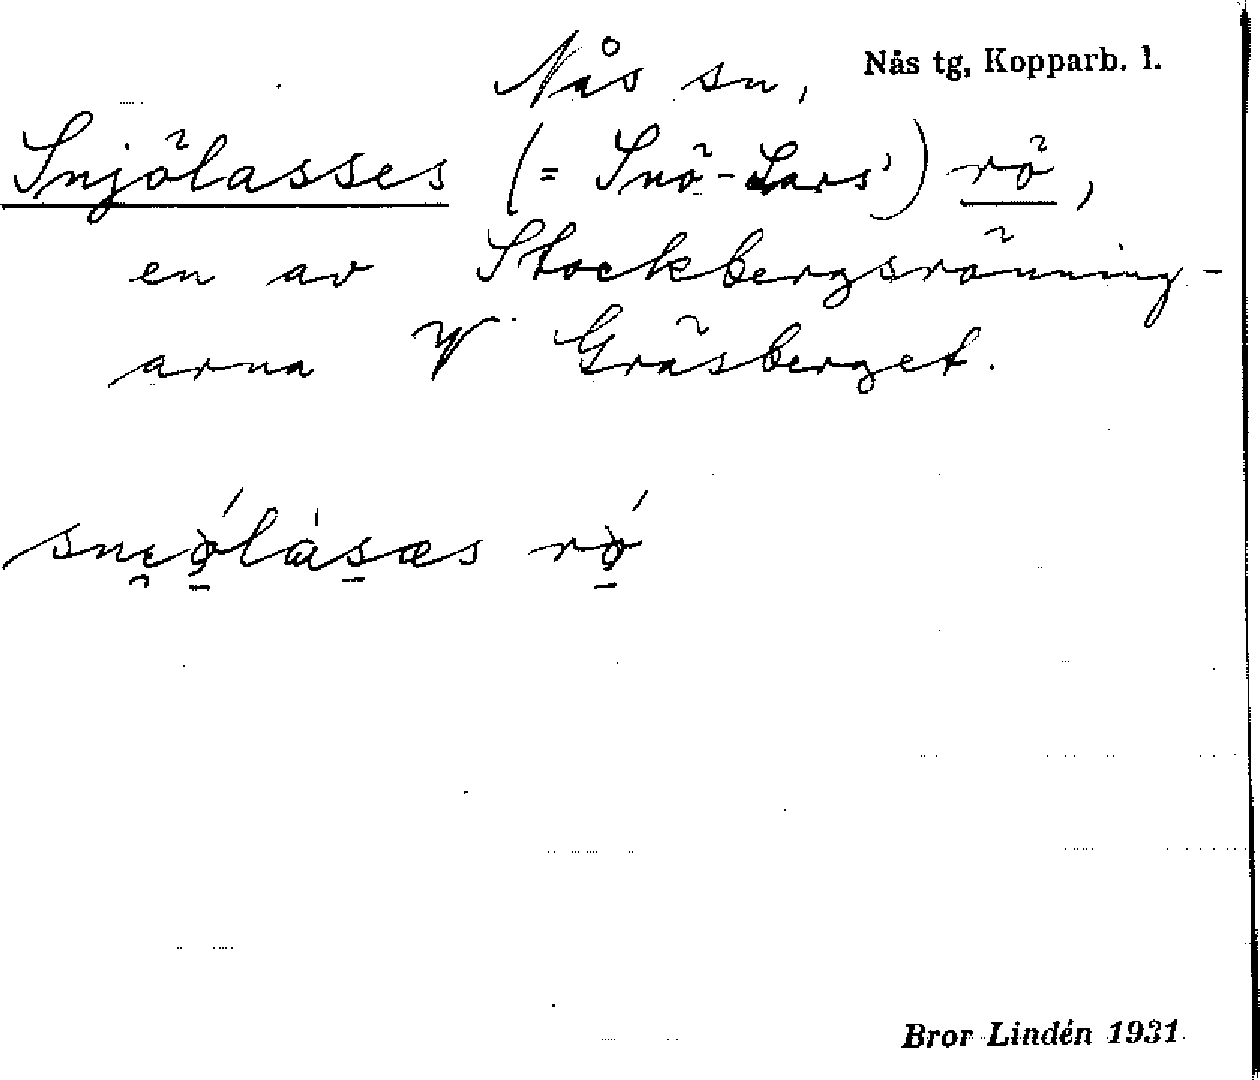 Nås sn, Nås tg, Kopparb. l.
Snjölasses (= Snö-Lars') rö,
en av Stockbergsrönning-
arna V Gräsberget.
rö́
Bror Lindén 1931